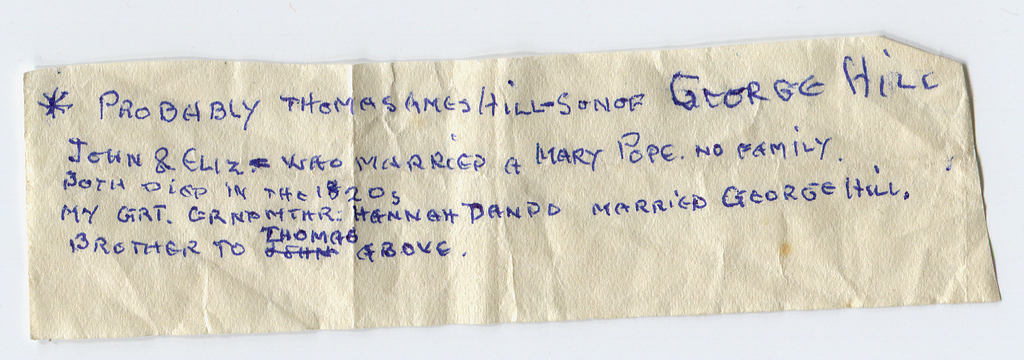 * PROBABLY THOMAS AMES HILL-SON OF GEORGE HILL
JOHN & ELIZ. WHO MARRIED A MARY POPE. NO FAMILY.
BOTH DIED IN THE 1820S
MY GRT. GRNDMTHR: HANNAH DANDO MARRIED GEORGE HILL.
BROTHER TO JOHN THOMAS ABOVE.